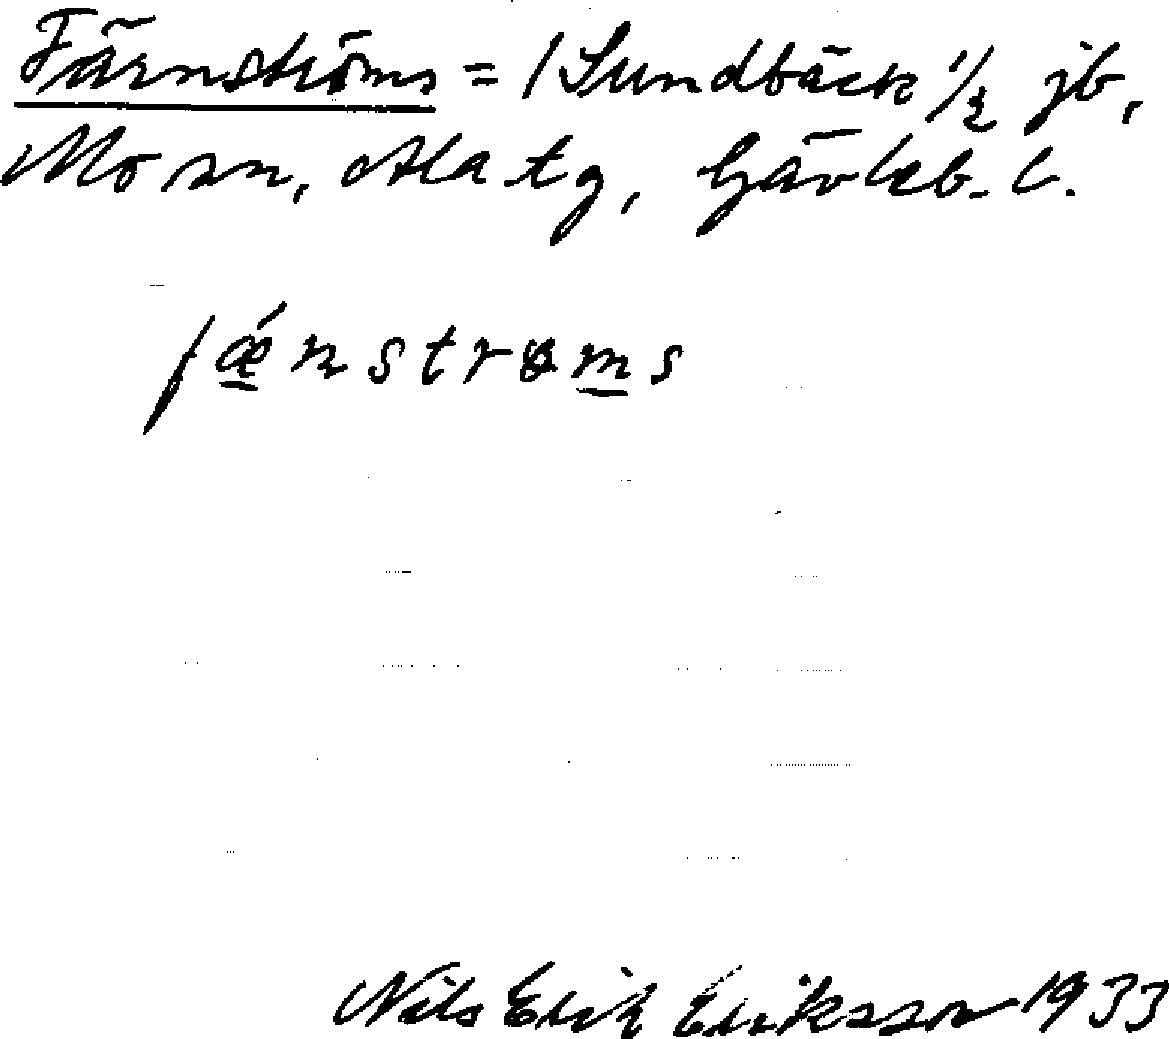 Färnströms = /Sundbäck 1/2 jb,
Mo sn, Ala tg, Gävleb. l.
fǽnstrøms
Nils Erik Eriksson 1933